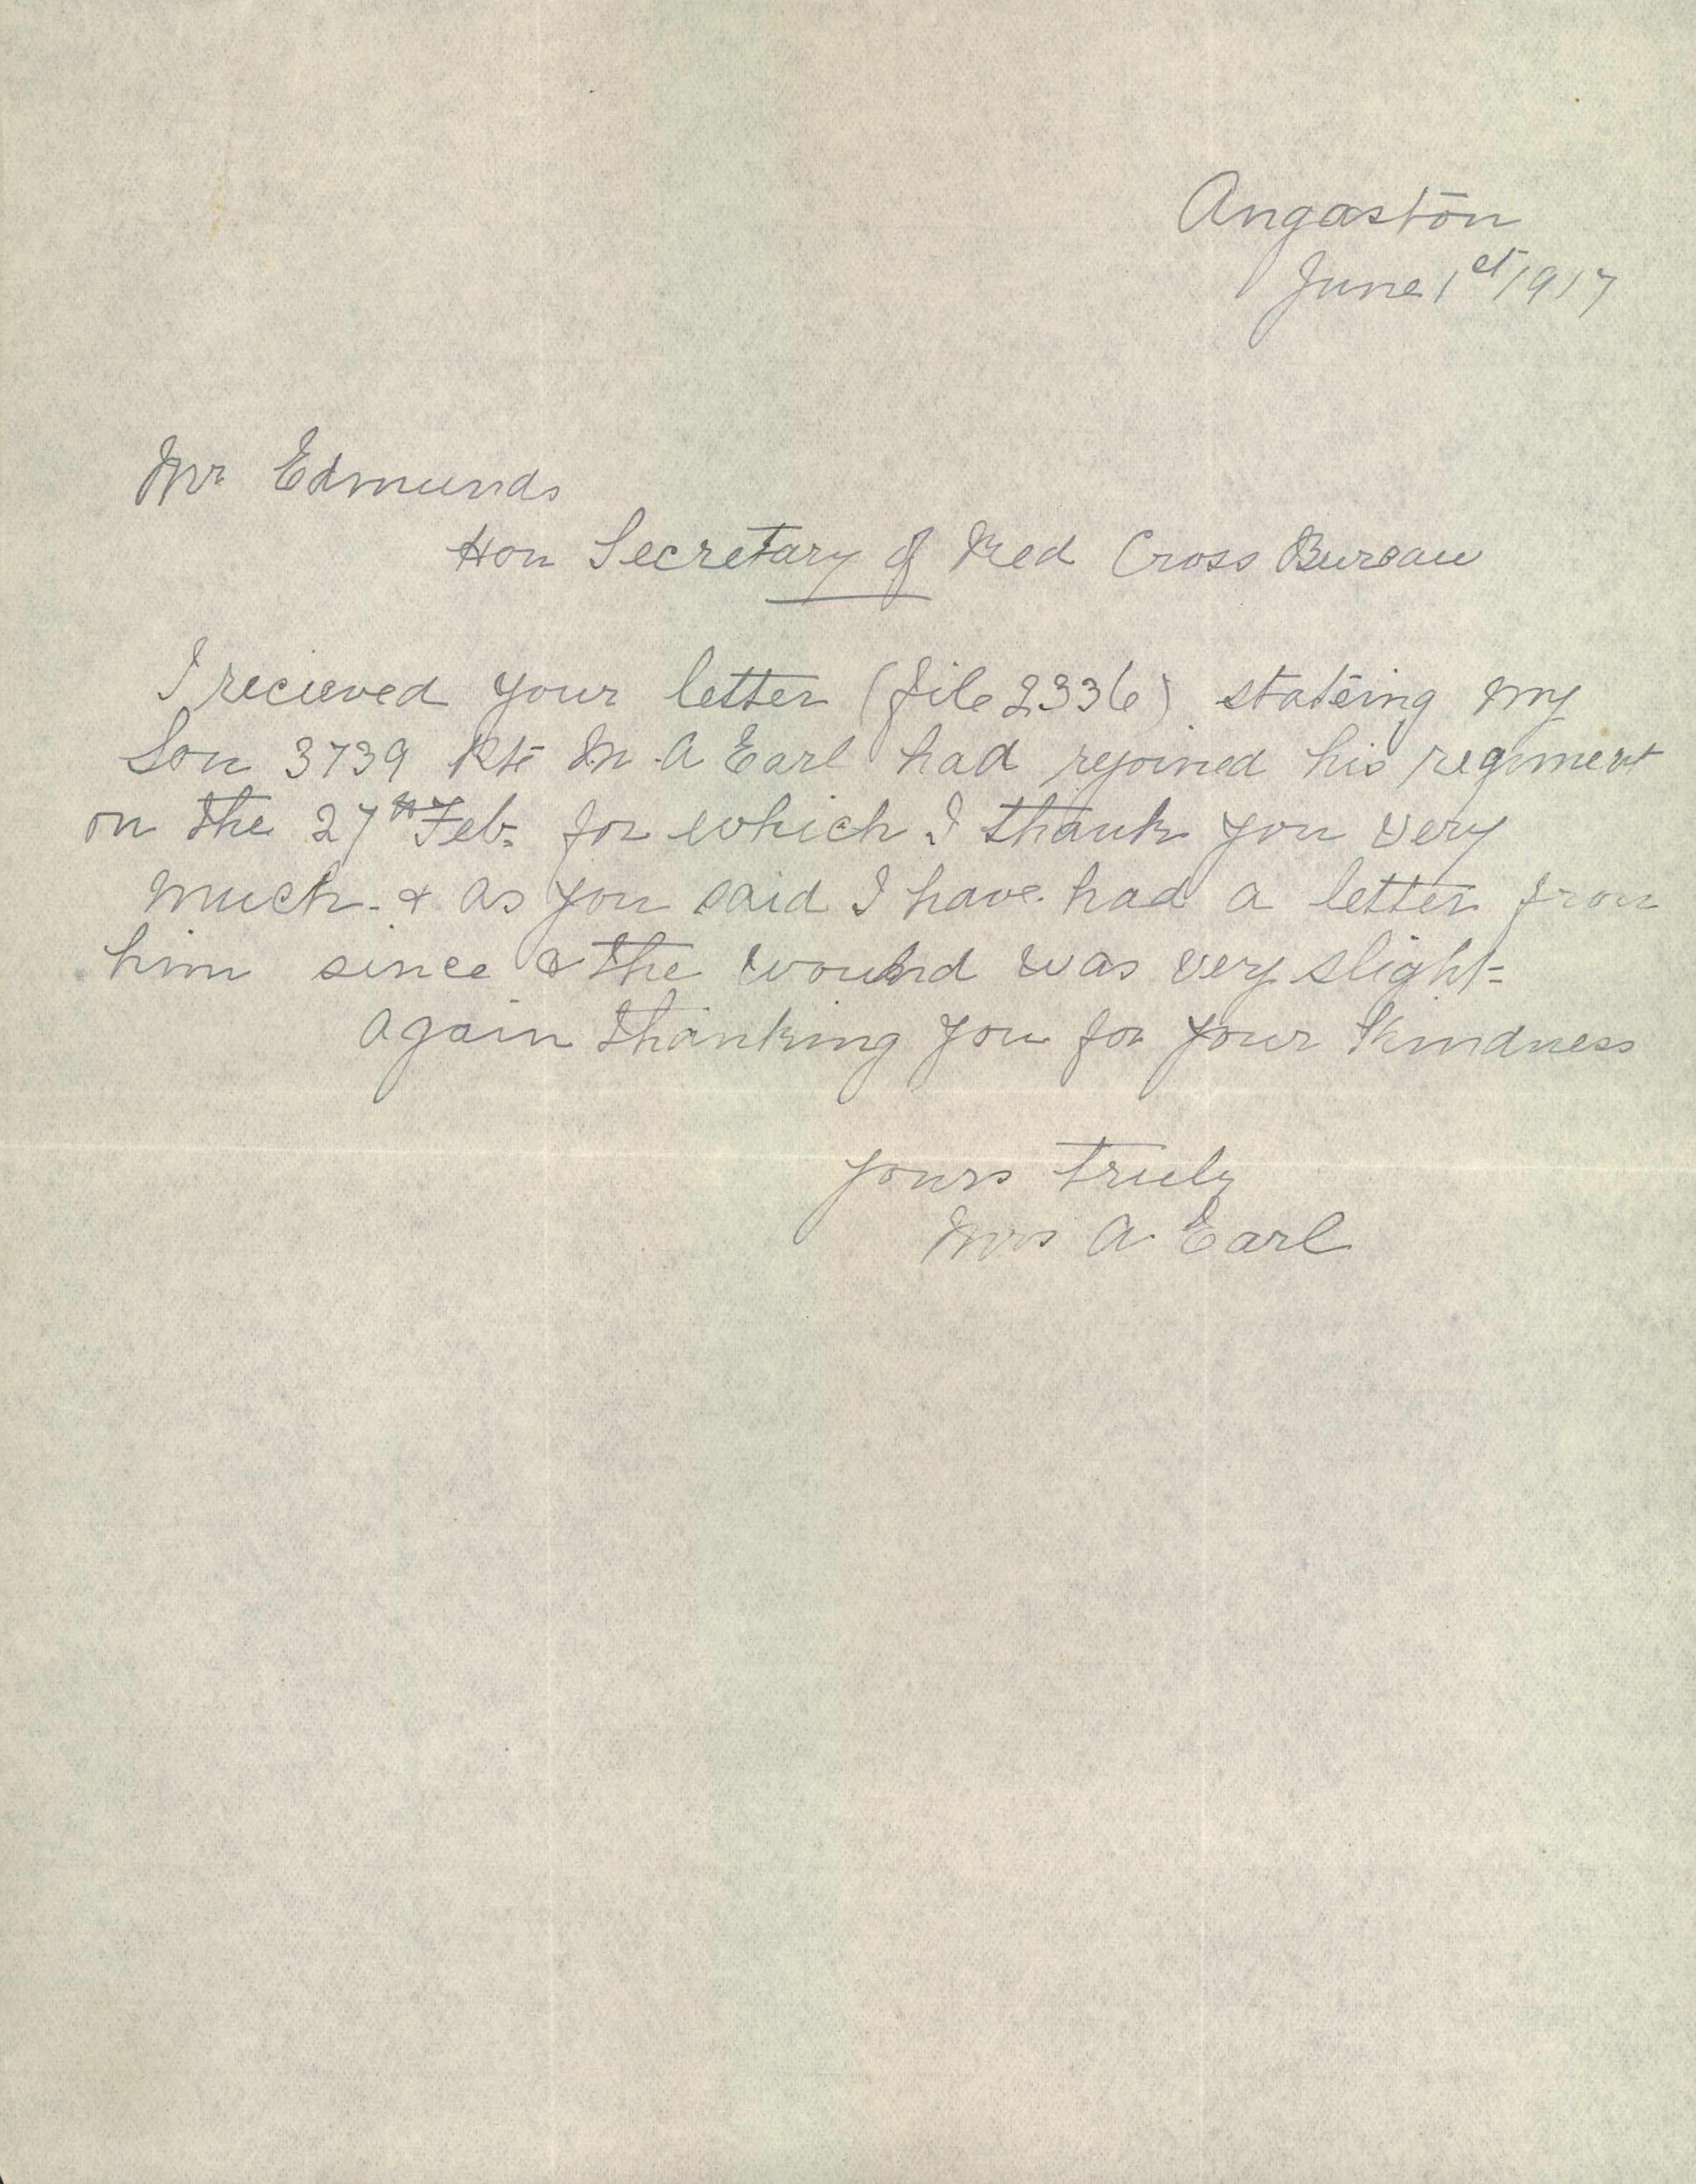 Angaston
June 1st 1917
Mr Edmunds
Hon Secretary of Red Cross Bureau
I recieved your letter (file 2336) stateing my
Son 3739 Pte M. A Earl had rejoined his regiment
on the 27th Feb. for which I thank you very
much. & as you said I have had a letter from
him since & the wound was very slight-
Again thanking you for your kindness
yours truly
Mrs A. Earl